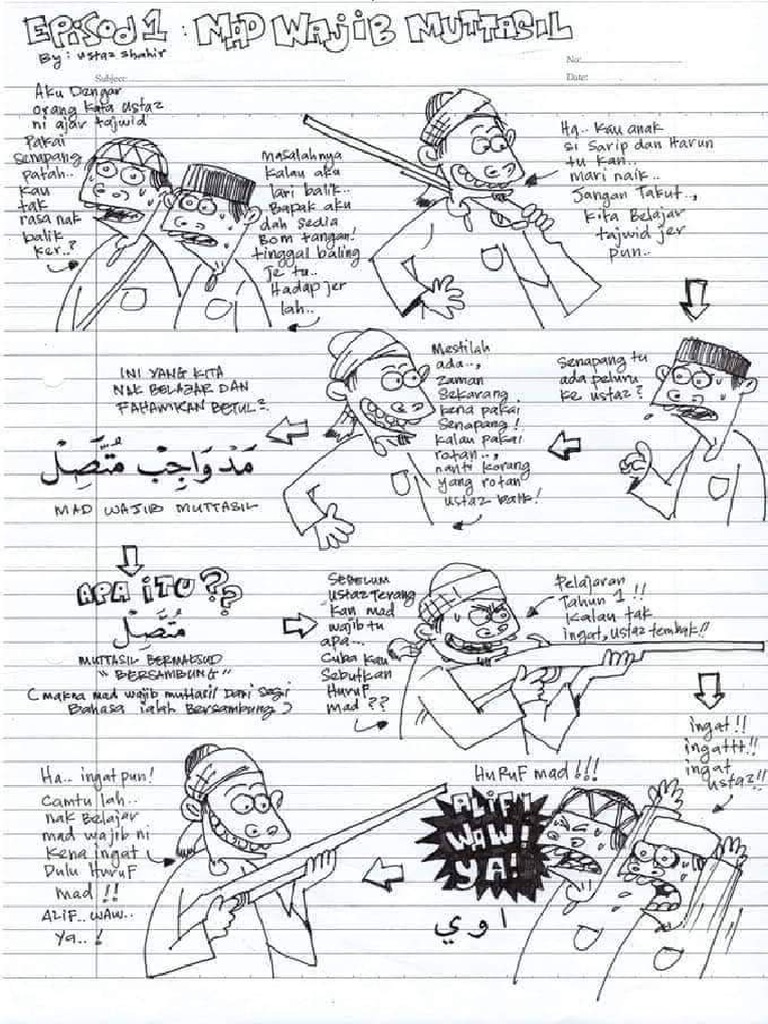 EPISOD 1 : MAD WAJIB MUTTASIL
By : ustaz shahir
No:
Subject
Date:
Aku Dengar
orang kata ustaz
ni ajar tajwid
Pakai
senapang
patah..
kau
tak
rasa nak
balik
ker..?
Masalahnya
kalau aku
lari balik..
Bapak aku
dah sedia
Bom tangan!
tinggal baling
je tu..
Hadap jer
lah..
Ha.. kau anak
si Sarip dan Harun
tu kan..
mari naik..
Jangan Takut..,
kita Belajar
tajwid jer
pun..
Senapang tu
ada peluru
ke ustaz?
Mestilah
ada..,
zaman
Sekarang
kena pakai
Senapang!
kalau pakai
rotan..,
nanti korang
yang rotan
ustaz balik!
INI YANG KITA
NAK BELAJAR DAN
FAHAMKAN BETUL2.
مَدْ وَاجِبْ مُتَّصِلْ
MAD WAJIB MUTTASIL
APA ITU??
مُتَّصِلْ
MUTTASIL BERMAKSUD
"BERSAMBUNG"
(makna mad wajib muttasil Dari segi
Bahasa ialah Bersambung)
SEBELUM
ustaz terang
kan mad
wajib tu
apa...
Cuba kau
Sebutkan
Huruf
mad??
Pelajaran
Tahun 1 !!
kalau tak
ingat, ustaz tembak!!
ingat!!
ingattt!!
ingat
ustaz!!
HuRuF mad!!!
ALIF!
WAW!
YA!
ا و ي
Ha.. ingat pun!
Camtu lah..
nak Belajar
mad wajib ni
kena ingat
Dulu HuruF
mad !!
ALIF.. WAW..
Ya..!